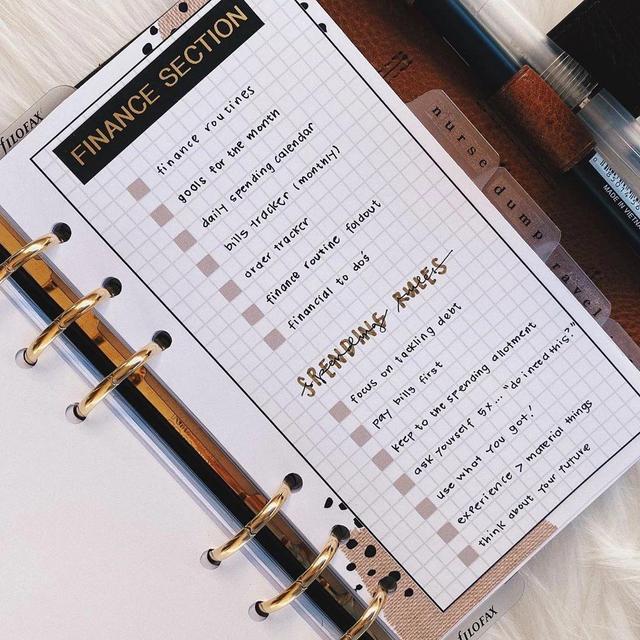 FINANCE SECTION
finance routines
goals for the month
daily spending calendar
bills tracker (monthly)
order tracker
finance routine foldout
financial to do's
SPENDING RULES
focus on tackling debt
pay bills first
keep to the spending allotment
ask yourself 5x... "do i need this?"
use what you got!
experience > material things
think about your future
nurse
dump
travel
FILOFAX
FILOFAX